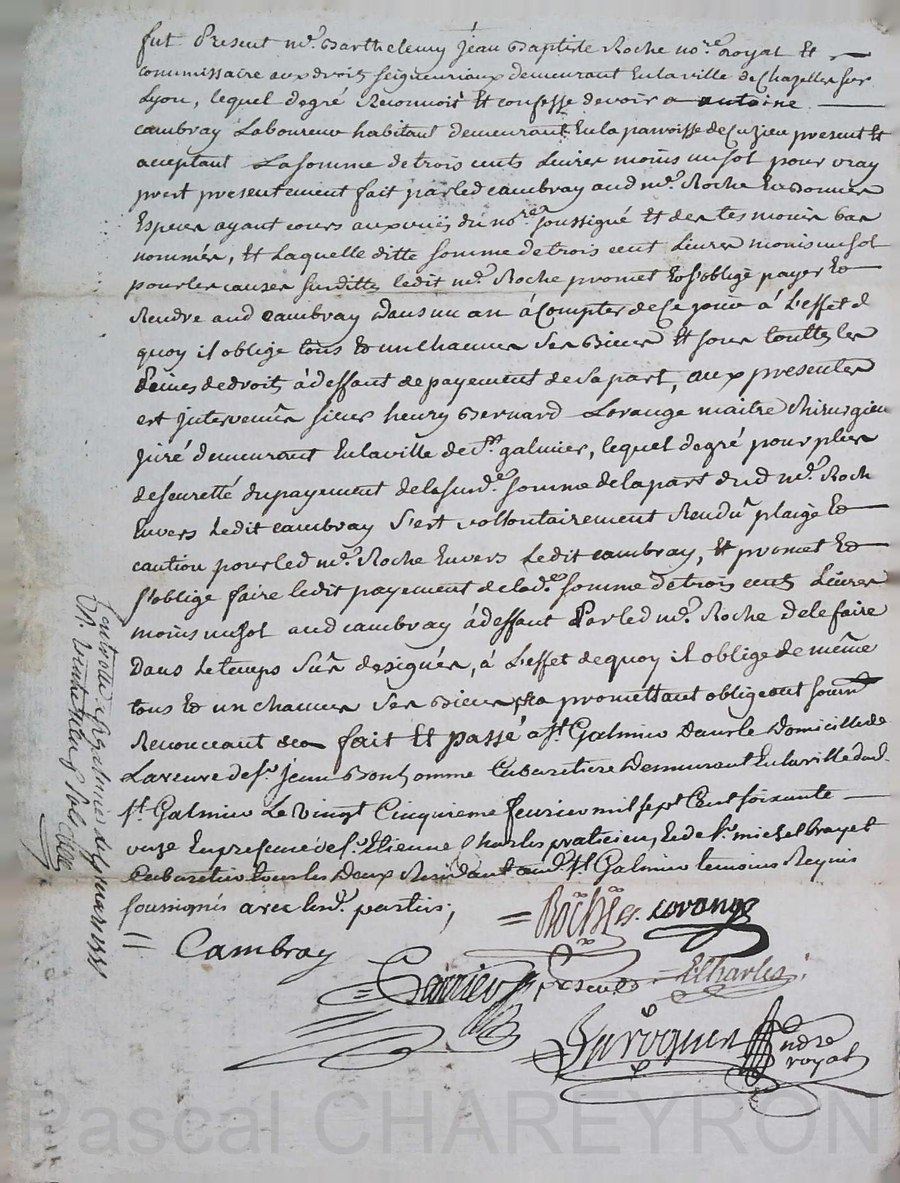 fut Present me. Barthelemy jean Baptiste Roche nore. royal Et
commissaire aux droits seigneuriaux demeurant En la ville de Chazelles sur
Lyon, lequel de gré Reconnoit Et confesse devoir a antoine
cambray Laboureur habitant demeurant En la paroisse de Cuzieu present Et
aceptant La somme de trois cents Livres moins un sol pour vray
prest presentement fait par led cambray aud me. Roche En bonnes
Especes ayant cours au du nore. soussigné Et des tesmoins bas
nommés, Et Laquelle ditte somme de trois cent Livres moins un sol
pour les causes susdittes ledit me. Roche promet Et s'oblige payer Et
Rendre aud cambray dans un an à Compter de Ce jour à L'effet de
quoy il oblige tous Et un chacun ses Biens Et sous touttes les
Peines de droit, à deffaut de payement de sa part, aux presentes
est intervenu sieur henry Bernard Lorange maitre Chirurgien
juré demeurant En la ville de st. galmier, lequel de gré pour plus
de seuretté du payement de la susde. somme de la part dud me. Roche
Envers Ledit cambray s'est vollontairement Rendu plaige Et
caution pour led me. Roche Envers Ledit cambray, Et promet Et
s'oblige faire ledit payement de lade. somme de trois cent Livres
moins un sol aud cambray à deffaut Par led me. Roche de le faire
Dans Le temps sus designés, à L'effet de quoy il oblige de même
tous Et un chacun ses Biens promettant obligeant soum
Renonceant &ca fait Et passé a st. Galmier dans le Domicille de
La veuve de sr. jean Bonhomme Cabaretiere Demeurant En la ville dud.
st. Galmier Le vingt Cinquieme fevrier mil sept Cent soixante
onze En presence de sr. Etienne Charles praticien, Et de sr. michel brayet
Cabaretier tous les deux Residant aud. st. Galmier temoins Requis
soussignés avec lesd. parties;
Cambray
Roche
Lorange
E Charles
Duroguen
Ndre
royal
Pascal CHAREYRON